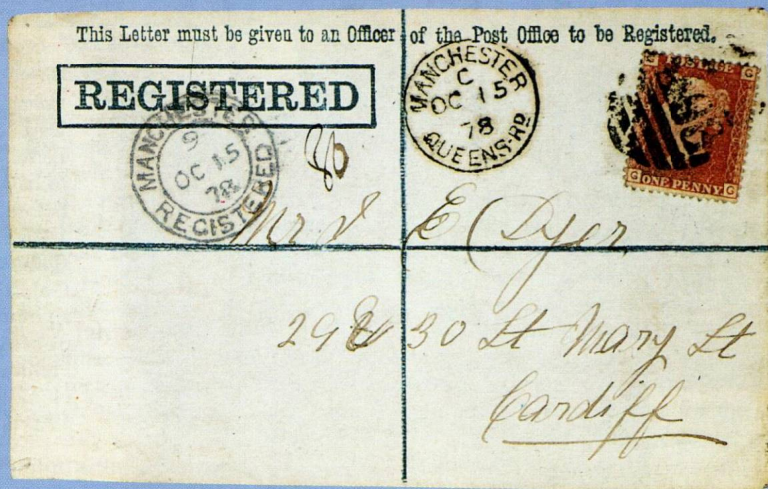 This Letter must be given to an Officer of the Post Office to be Registered.
REGISTERED
MANCHESTER
C
OC 15
78
QUEENS-RD
MANCHESTER
9
OC 15
78
REGISTERED
G G
ONE PENNY
Mr J E Dyer
29 & 30 St Mary St
Cardiff